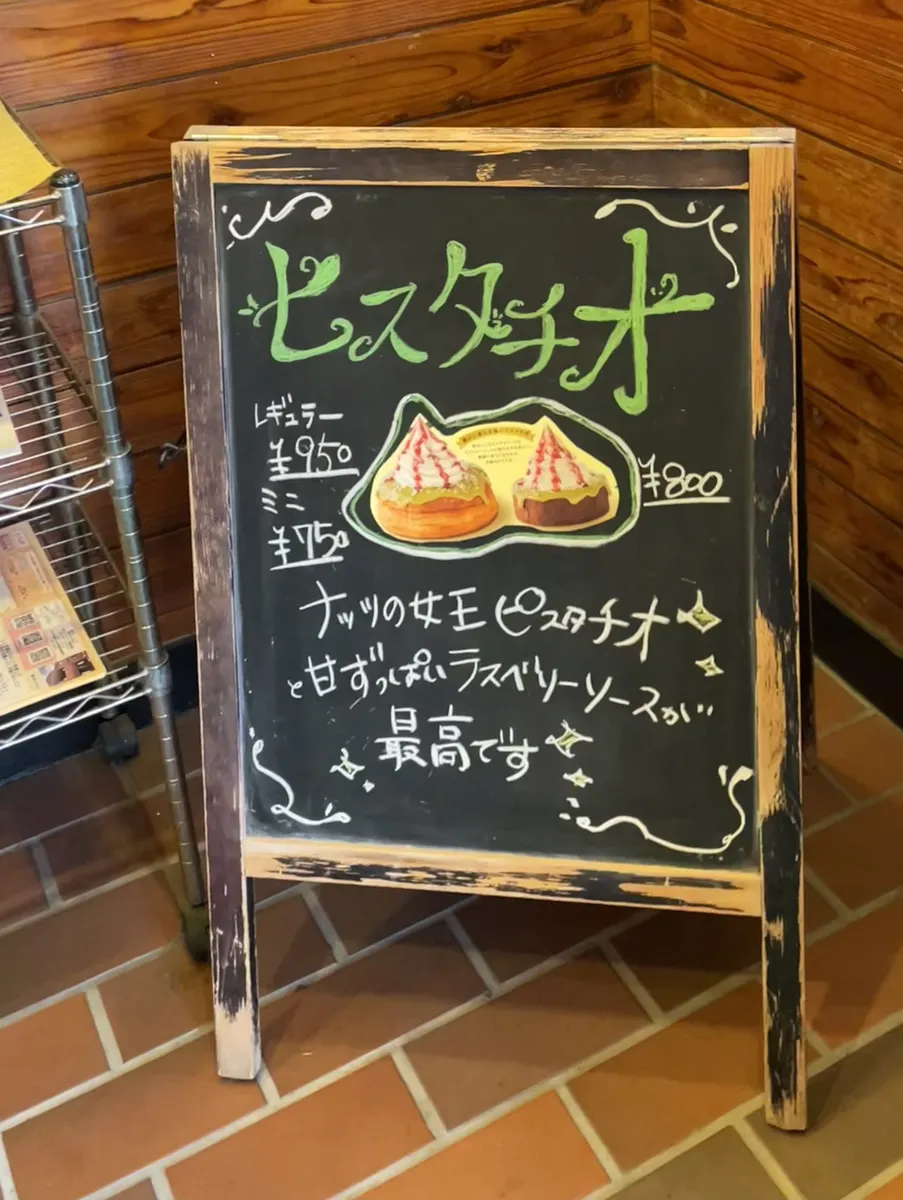 ピスタチオ
レギュラー
¥950
ミニ
¥750
¥800
ナッツの女王ピスタチオ
と甘ずっぱいラズベリーソースが
最高です